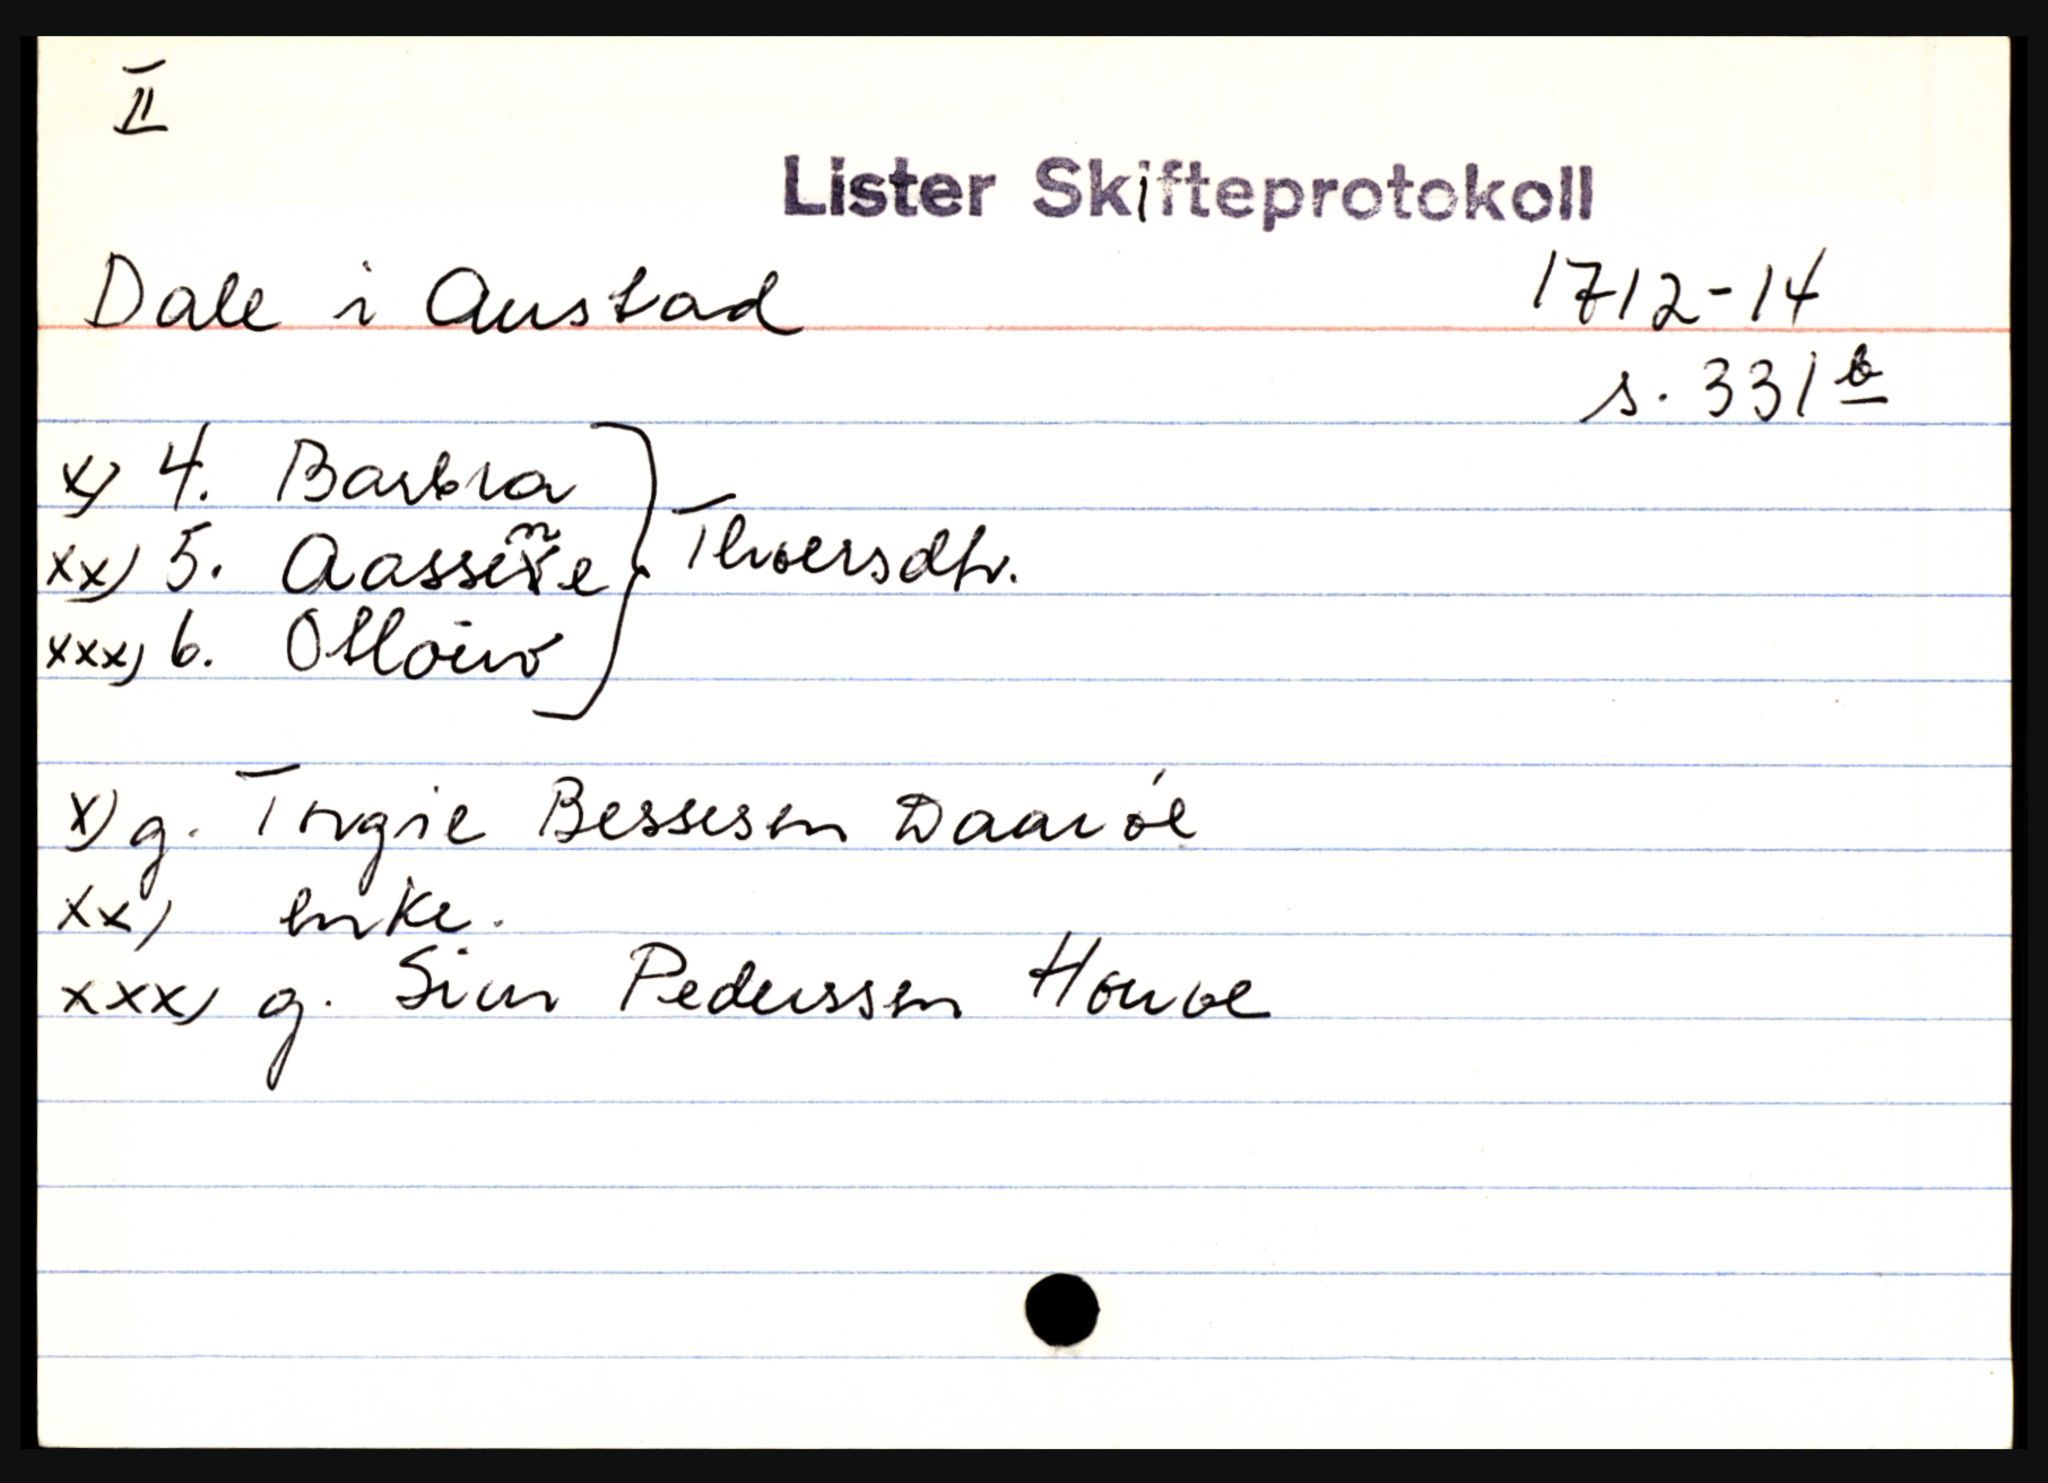 II
Lister Skifteprotokoll
Dale i Austad 1712-14
s. 331 b
x) 4. Barbra
xx) 5. Aassene } Thoersdtr.
xxx) 6.
x) g. Torgie Bessesen Daarøe
xx) enke.
xxx) g. Siur Pederssen Houve